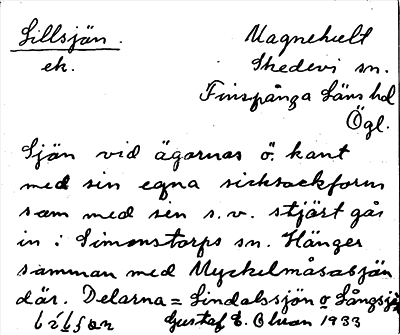 Lillsjön. Magnehult
ek. Skedevi sn.
Finspånga Läns hd
Ögl.
Sjön vid ägornas ö. kant
med sin egna sicksackform
som med sin s.v. stjärt går
in i Simonstorps sn. Hänger
samman med Myckelmåsasjön
där. Delarna = Lindalssjön o Långsjön
Gustaf E. Olsson 1933